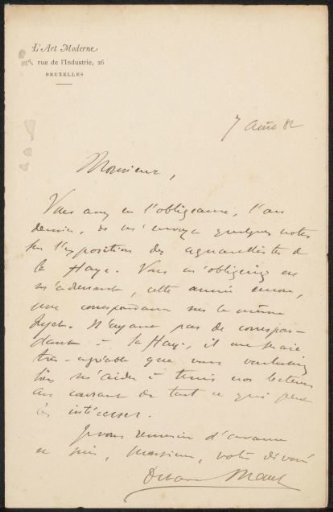 L'Art Moderne
rue de l'Industrie, 26
BRUXELLES
7 Août 82
Monsieur,
Vous avez eu l'obligeance, l'an
dernier, de m'envoyer quelques notes
sur l'exposition des aquarellistes de
la Haye. Vous m'obligeriez en
m'adressant, cette année encore,
une correspondance sur le même
sujet. N'ayant pas de correspon-
dant à la Haye, il me serait
très agréable que vous voulussiez
bien m'aider à tenir nos lecteurs
au courant de tout ce qui peut
les intéresser.
Je vous remercie d'avance
et suis, Monsieur, votre dévoué
Octave Maus